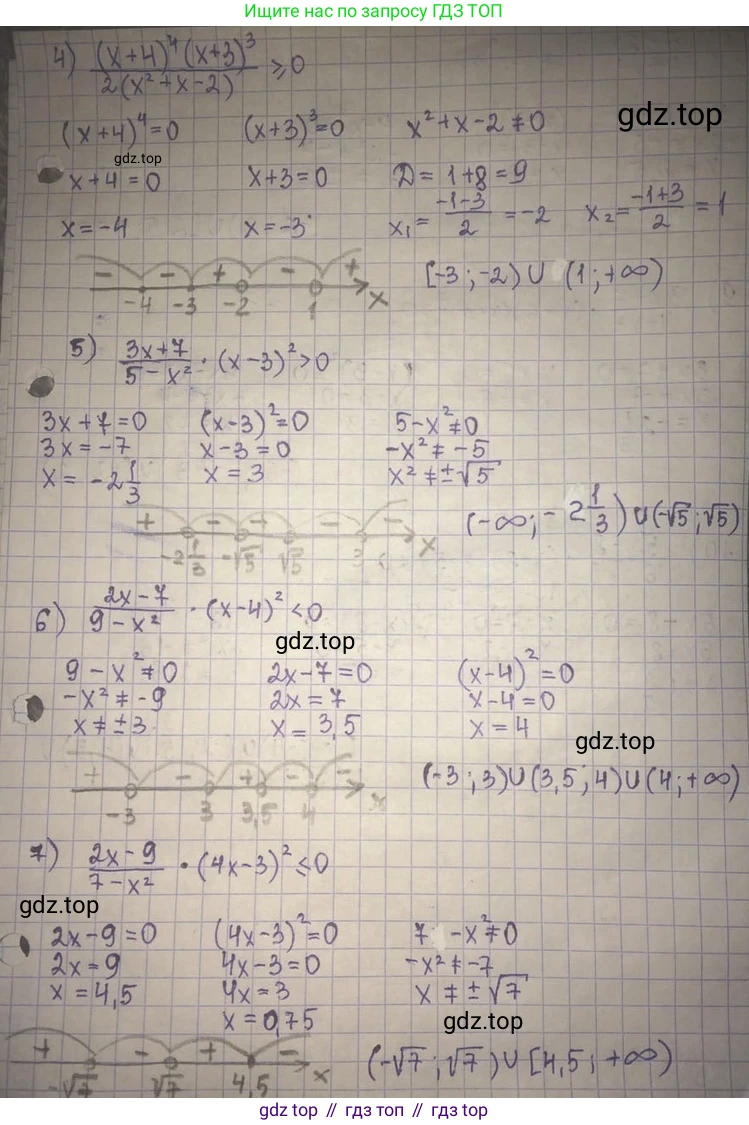 Ищите нас по запросу ГДЗ ТОП
4) (x+4)⁴(x+3)³ / 2(x²+x-2) ⩾0
gdz.top
(x+4)⁴=0 (x+3)³=0 x²+x-2≠0
gdz.top
x+4=0 x+3=0 D=1+8=9
x=-4 x=-3 x₁=(-1-3)/2=-2 x₂=(-1+3)/2=1
- - + - +
-4 -3 -2 1 x
[-3;-2)∪(1;+∞)
5) (3x+7)/(5-x²)·(x-3)²>0
3x+7=0 (x-3)²=0 5-x²≠0
3x=-7 x-3=0 -x²≠-5
x=-2 1/3 x=3 x²≠±√5
+ - + - -
-2 1/3 -√5 √5 3 x
(-∞;-2 1/3)∪(-√5;√5)
6) (2x-7)/(9-x²)·(x-4)²<0
gdz.top
9-x²≠0 2x-7=0 (x-4)²=0
-x²≠-9 2x=7 x-4=0
x≠±3 x=3,5 x=4
gdz.top
+ - + - -
-3 3 3,5 4 x
(-3;3)∪(3,5;4)∪(4;+∞)
7) (2x-9)/(7-x²)·(4x-3)²⩽0
gdz.top
2x-9=0 (4x-3)²=0 7-x²≠0
2x=9 4x-3=0 -x²≠-7
x=4,5 4x=3 x≠±√7
x=0,75
gdz.top
+ - + -
-√7 √7 4,5 x
(-√7;√7)∪[4,5;+∞)
gdz топ // гдз топ // gdz.top